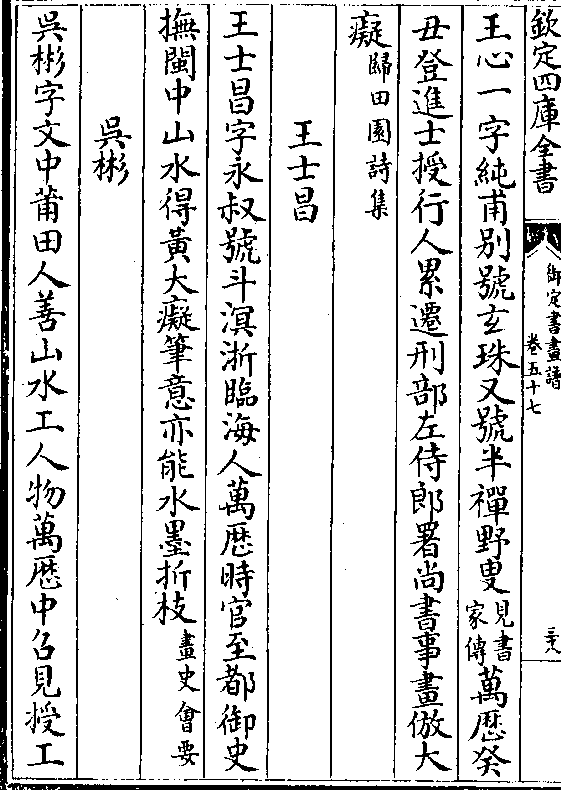 欽定四庫全書
御定書畫譜
卷五十七
三十八
王心一字純甫别號玄珠又號半禪野叟見書家傳萬厯癸
丑登進士授行人累遷刑部左侍郎署尚書事畫倣大
癡歸田園詩集
王士昌
王士昌字永叔號斗溟浙臨海人萬厯時官至都御史
撫閩中山水得黃大癡筆意亦能水墨折枝畫史會要
吳彬
吳彬字文中莆田人善山水工人物萬厯中召見授工